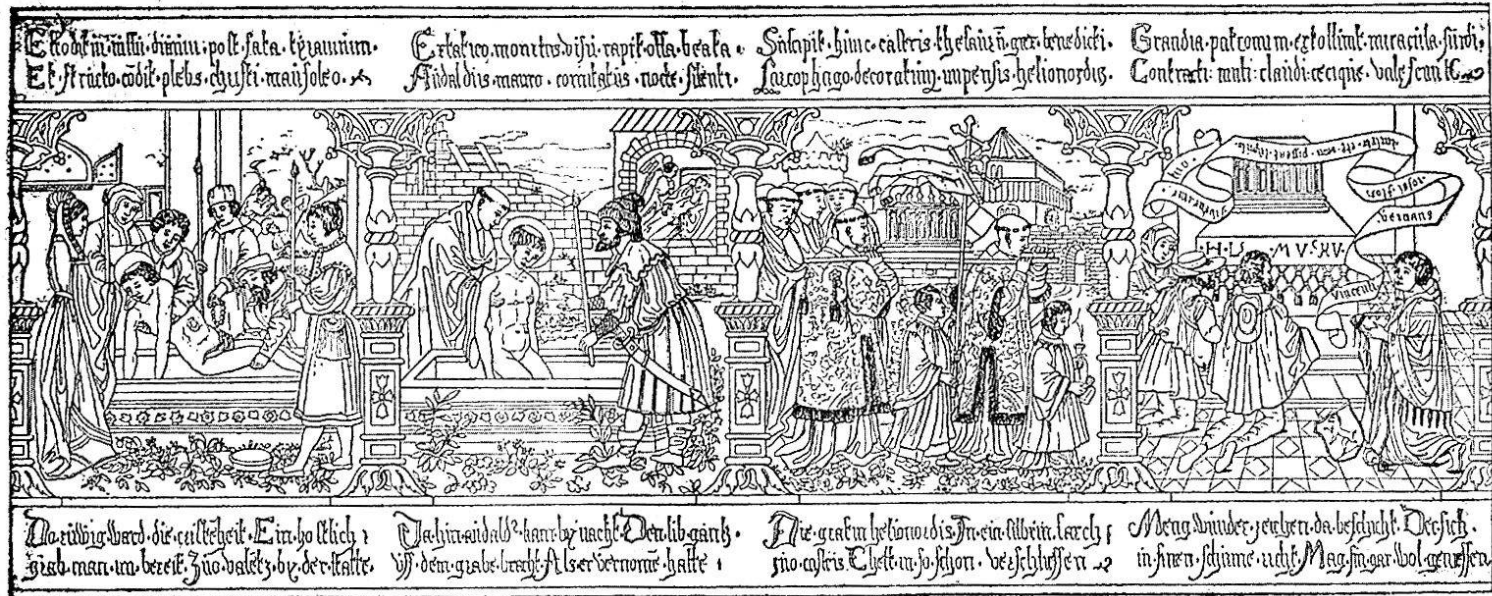 post·fata·tyrannum·
Et·structo·cōdit·plebs·christi·mausoleo·
Extatico·monitus·visu·rapit·ossa·beata·
Audaldus·mauro·comitatus·nocte·silenti·
Suscipit·hinc·castris·thesaurū·grex·benedicti·
Sarcophago·decoratum·inpensis·helionordis
Grandia·patronum·extollunt·miracula·surdi
Contracti:muti:claudi:cecique·valescunt
Vincenti
Do·rüwig·ward·die·cristēheit·Ein·kostlich
grab·man·im·bereit·Zuo·valētz·by·der·statte·
Dahin·audald9·kam·by·nacht·Den·lib·gantz·
vss·dem·grabe·bracht·Als·er·vernomē·hatte
Die·grafin·helionordis·In·ein·silbrin·sarch
zuo·castris·Thett·in·so·schon·verschliessen
Meng·wunder·zeichen·da·beschicht·Der·sich·
in·sinen·schirme·richt·Mag·sin·gar·wol·geniessen